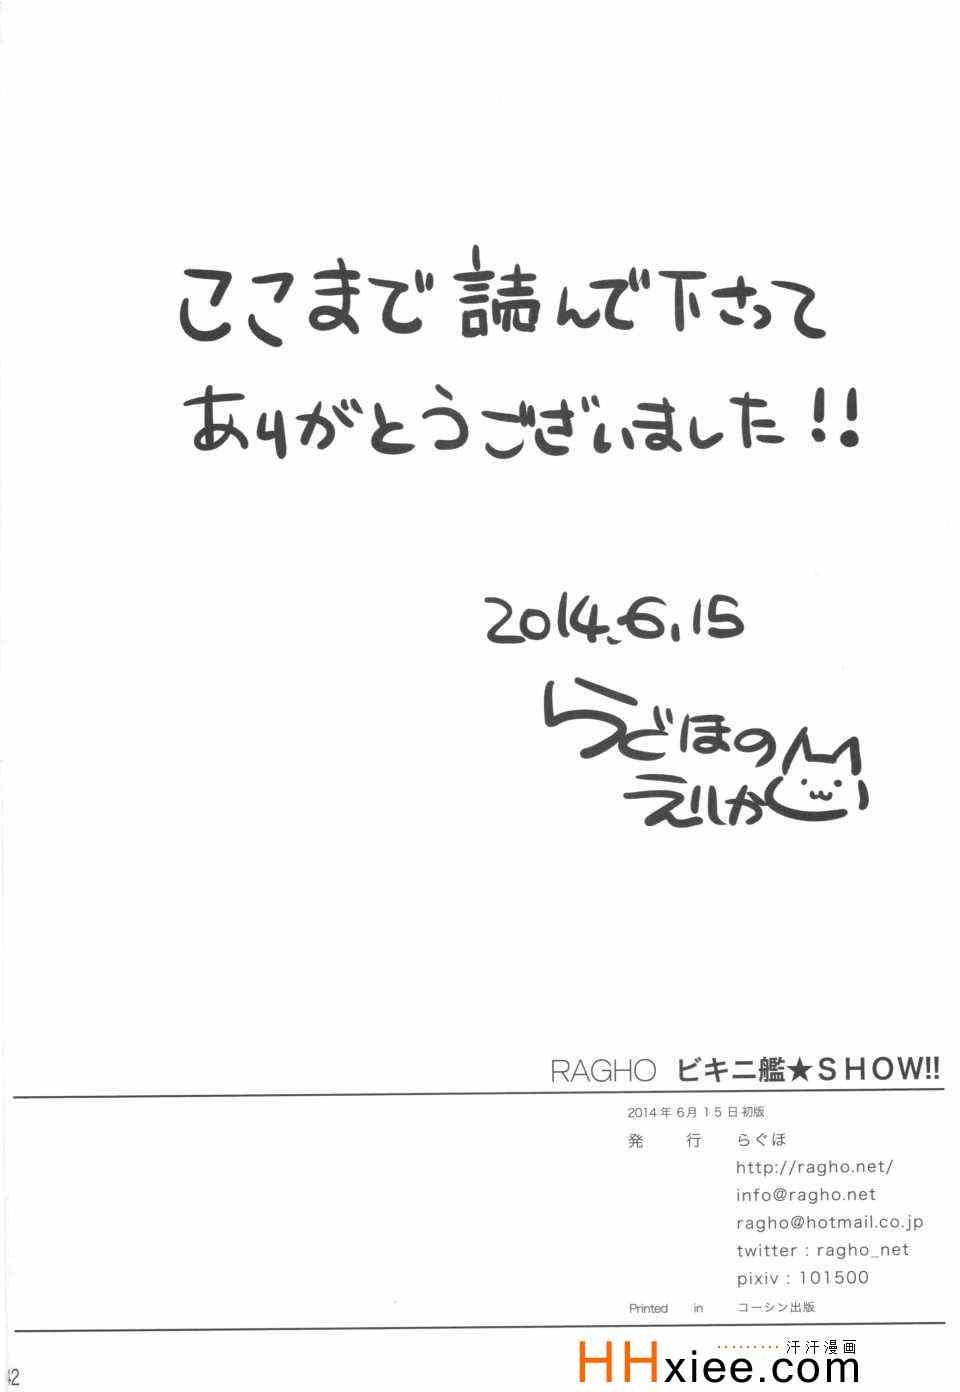 ここまで読んで下さって
ありがとうございました!!
2014.6.15
らぐほの
えいか
RAGHO ビキニ艦★SHOW!!
2014年6月15日初版
発 行 らぐほ
http://ragho.net/
info@ragho.net
ragho@hotmail.co.jp
twitter : ragho_net
pixiv : 101500
Printed in コーシン出版
42
………汗汗漫画
HHxiee.com